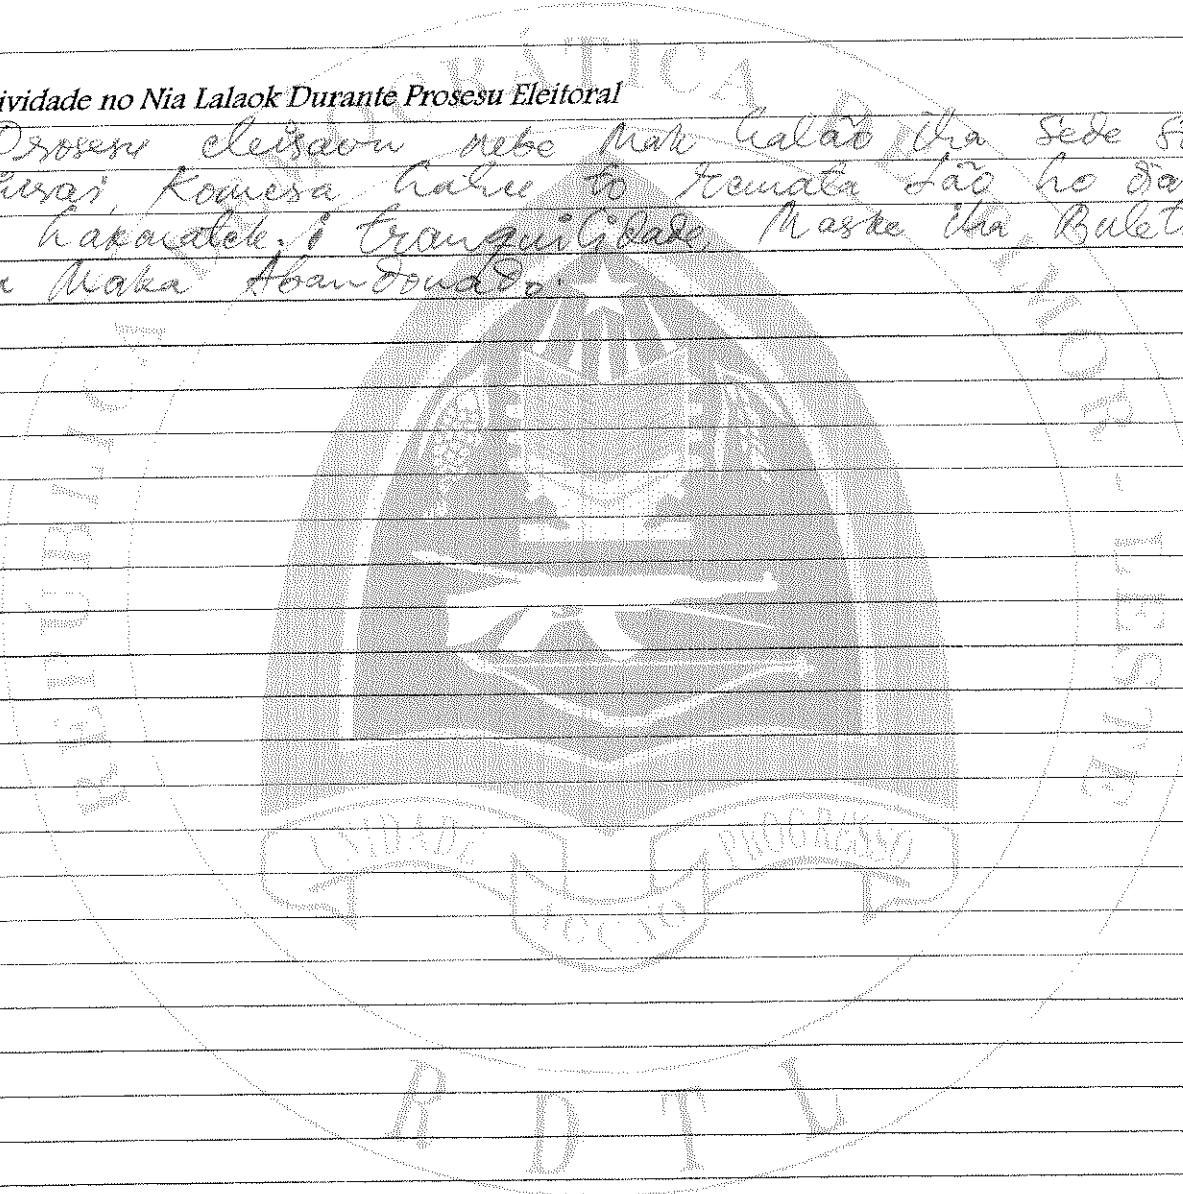 ividade no Nia Lalaok Durante Prosesu Eleitoral
Prosesu eleisaun nebe Mak halao iha Sede
Komesa hahu to Remata lao ho dia
hakmatek i tranquilidade, Maske iha Bulet
Maka Abandonado.
REPÚBLICA DEMOCRÁTICA DE TIMOR-LESTE
UNIDADE ACÇÃO PROGRESSO
RDTL